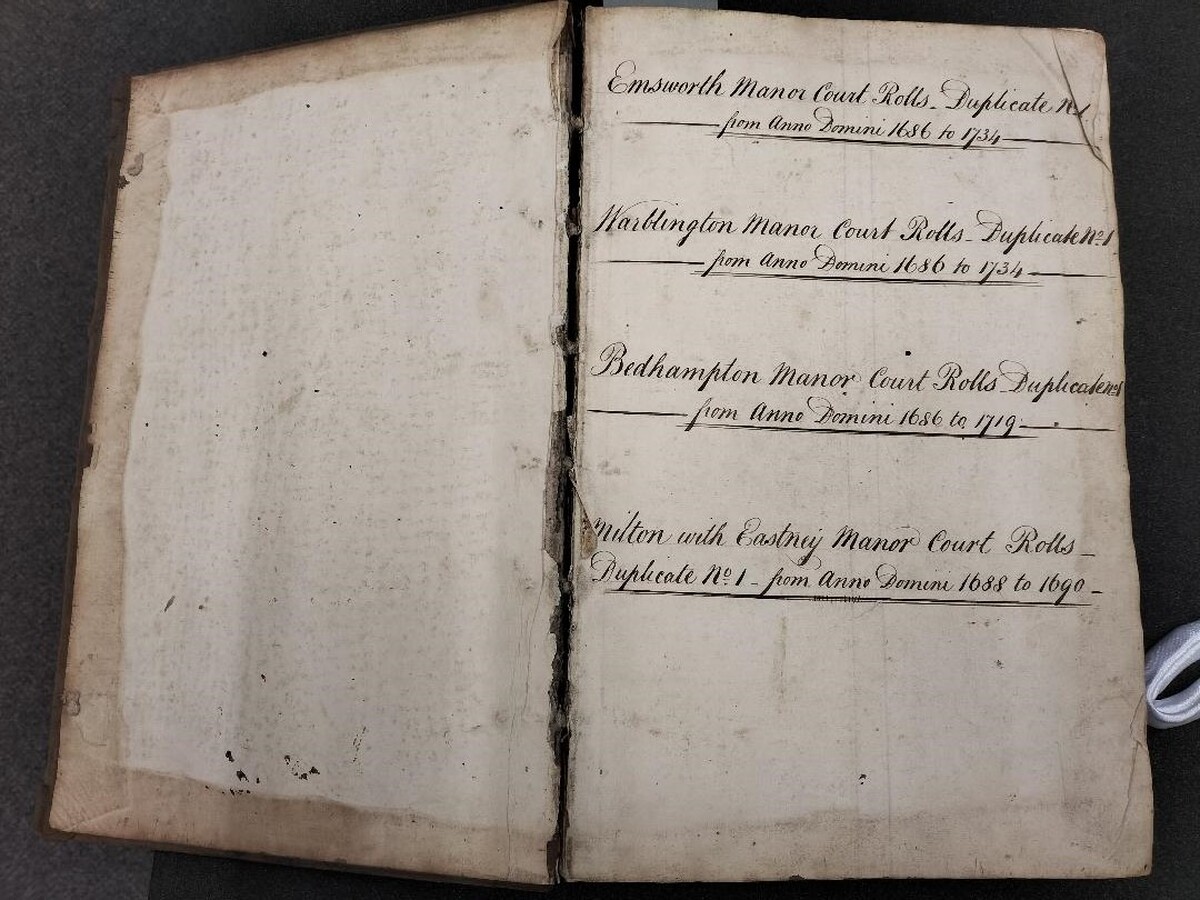 Emsworth Manor Court Rolls - Duplicate No. 1
from Anno Domini 1686 to 1734
Warblington Manor Court Rolls - Duplicate No. 1
from Anno Domini 1686 to 1734
Bedhampton Manor Court Rolls Duplicate No. 1
from Anno Domini 1686 to 1719
Milton with Eastney Manor Court Rolls -
Duplicate No. 1 - from Anno Domini 1688 to 1690 -